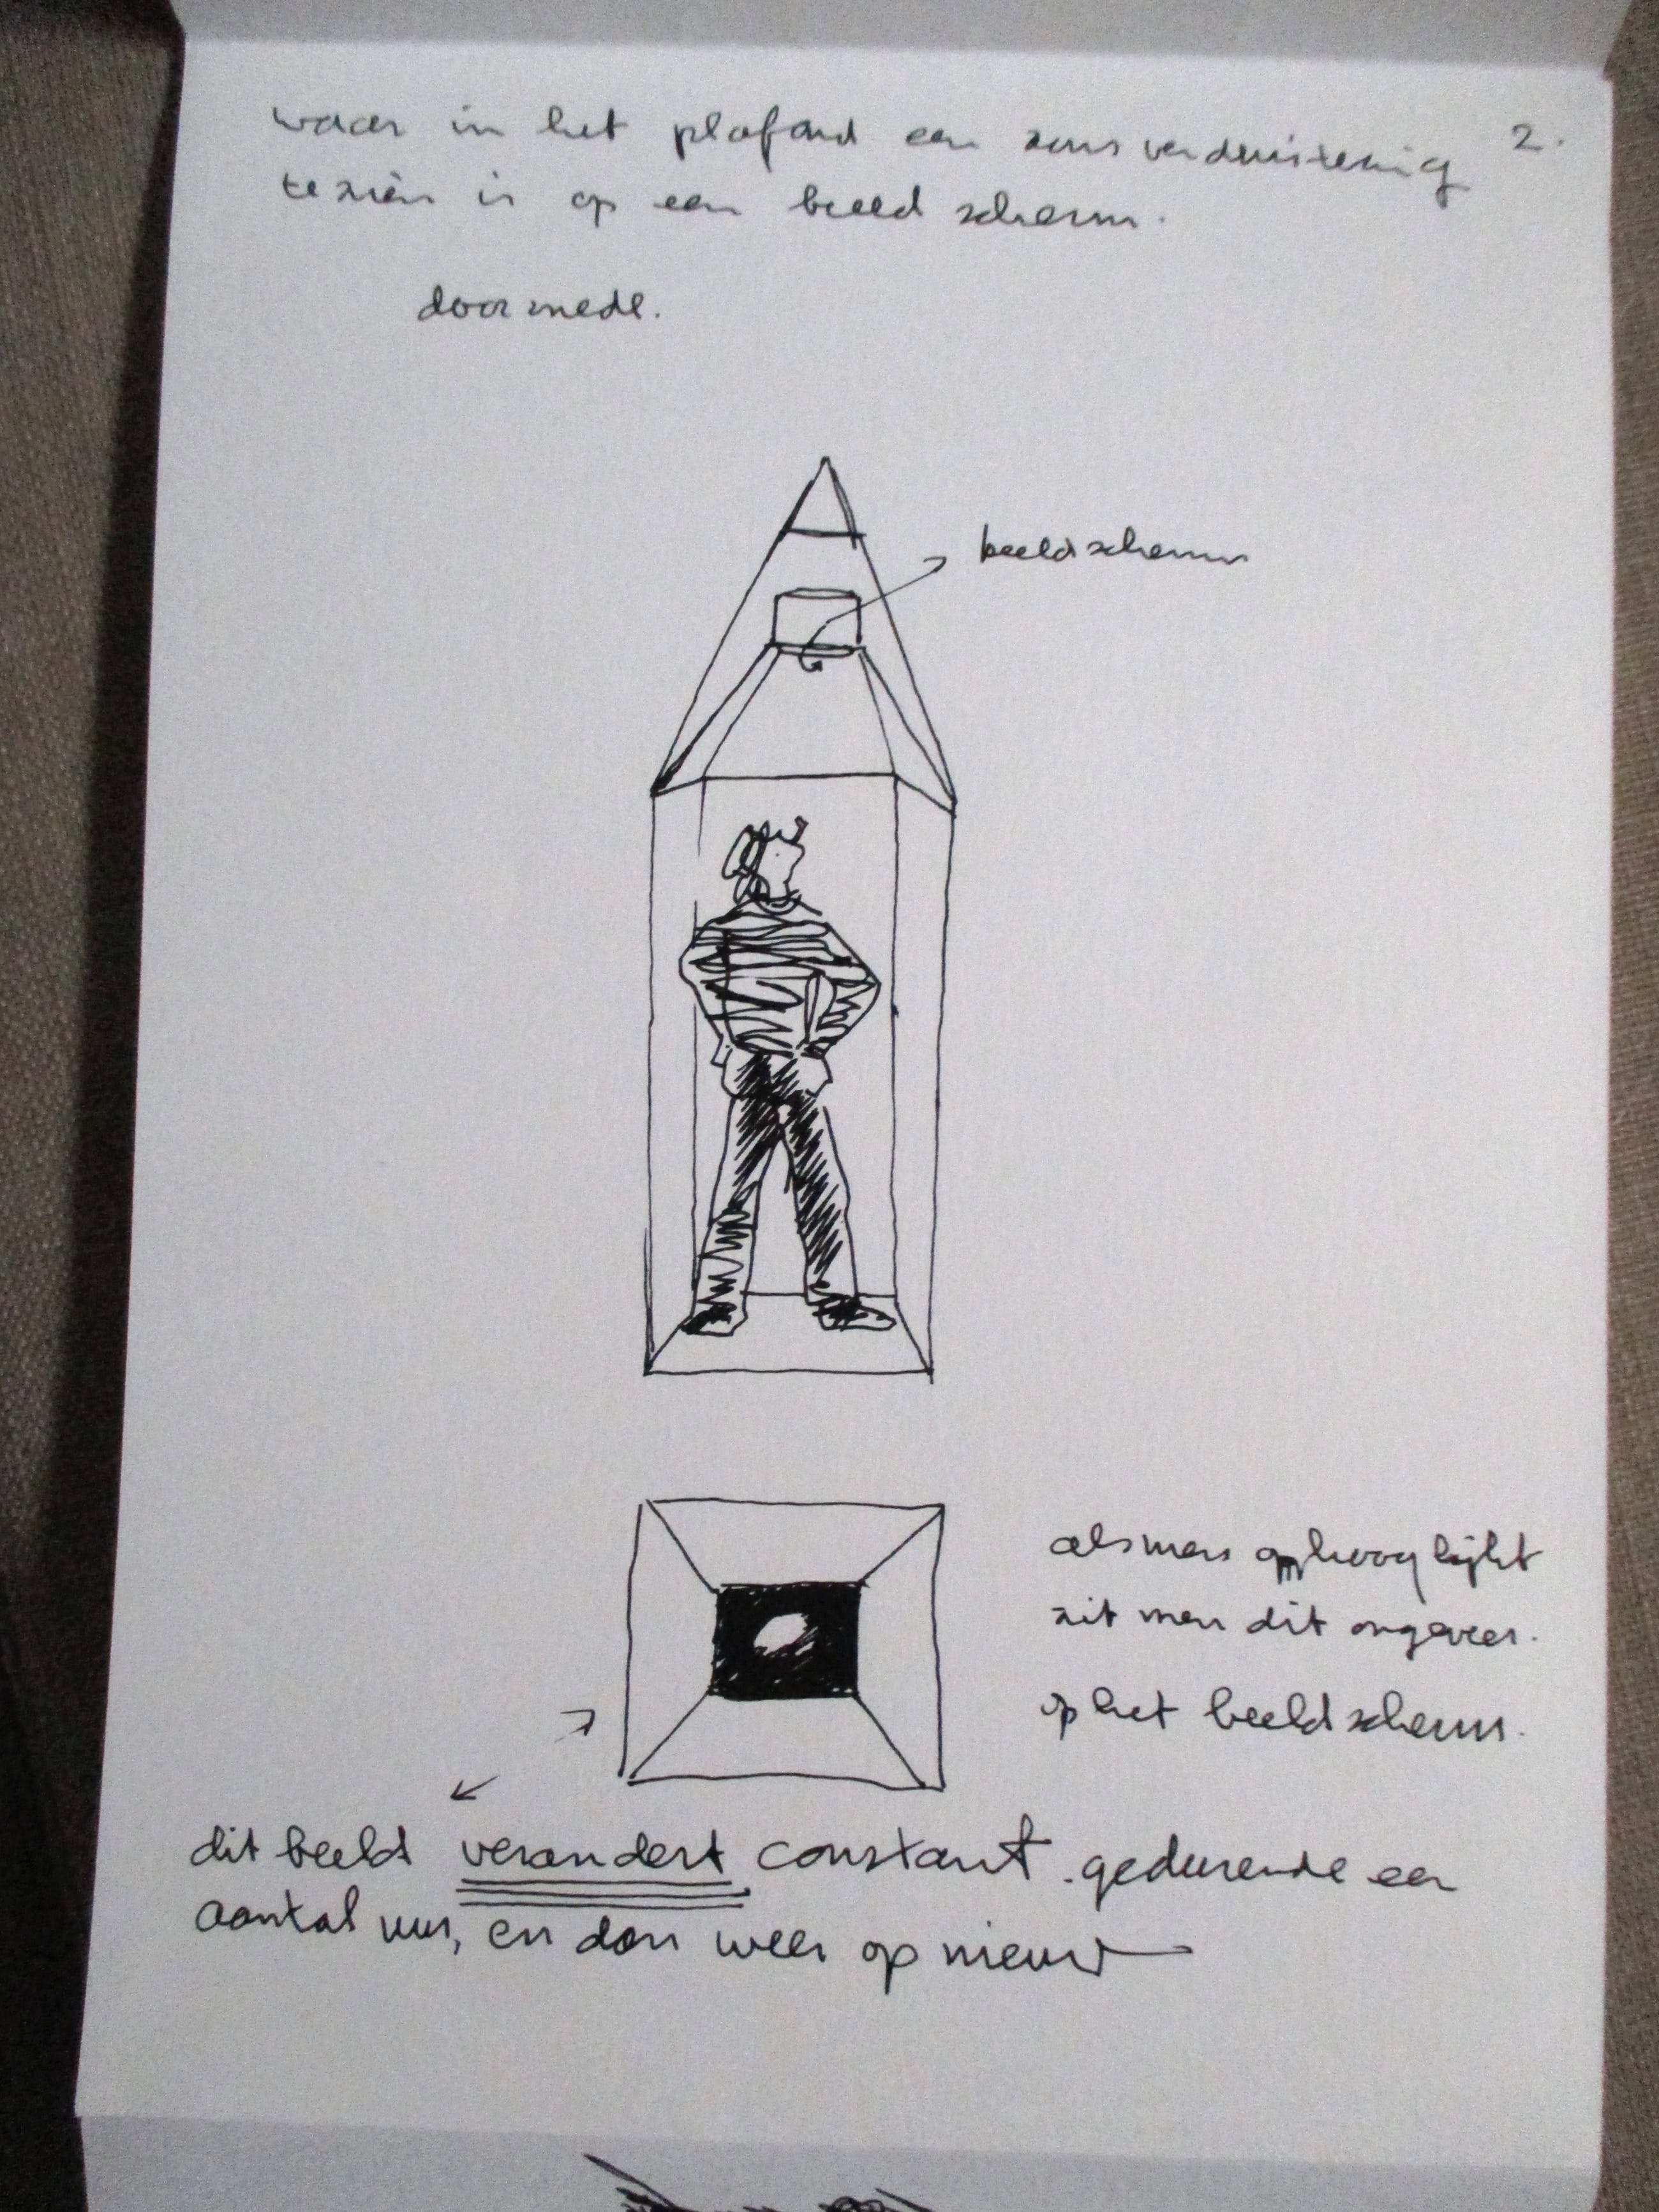 waar in het plafond een zonsverduistering 2.
te zien is op een beeld scherm.
doorsnede.
beeldscherm
als men omhoog kijkt
ziet men dit ongeveer.
op het beeldscherm.
dit beeld verandert constant. gedurende een
aantal uur, en dan weer op nieuw